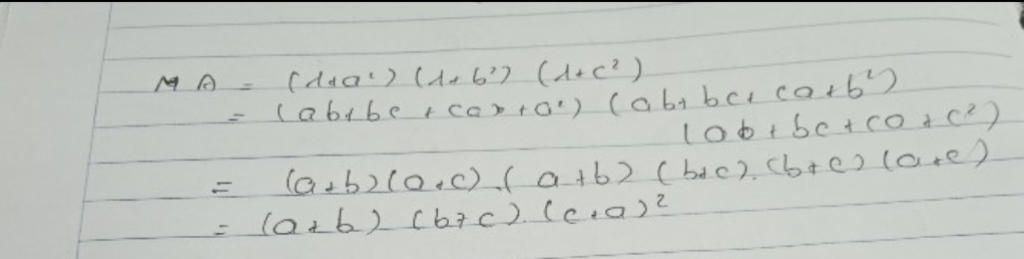 MA = (1+a²) (1+b²) (1+c²)
= (ab+bc+ca+a²) (ab+bc+ca+b²)
(ab+bc+ca+c²)
= (a+b)(a+c).(a+b)(b+c).(b+c)(a+c)
= (a+b)(b+c).(c+a)²